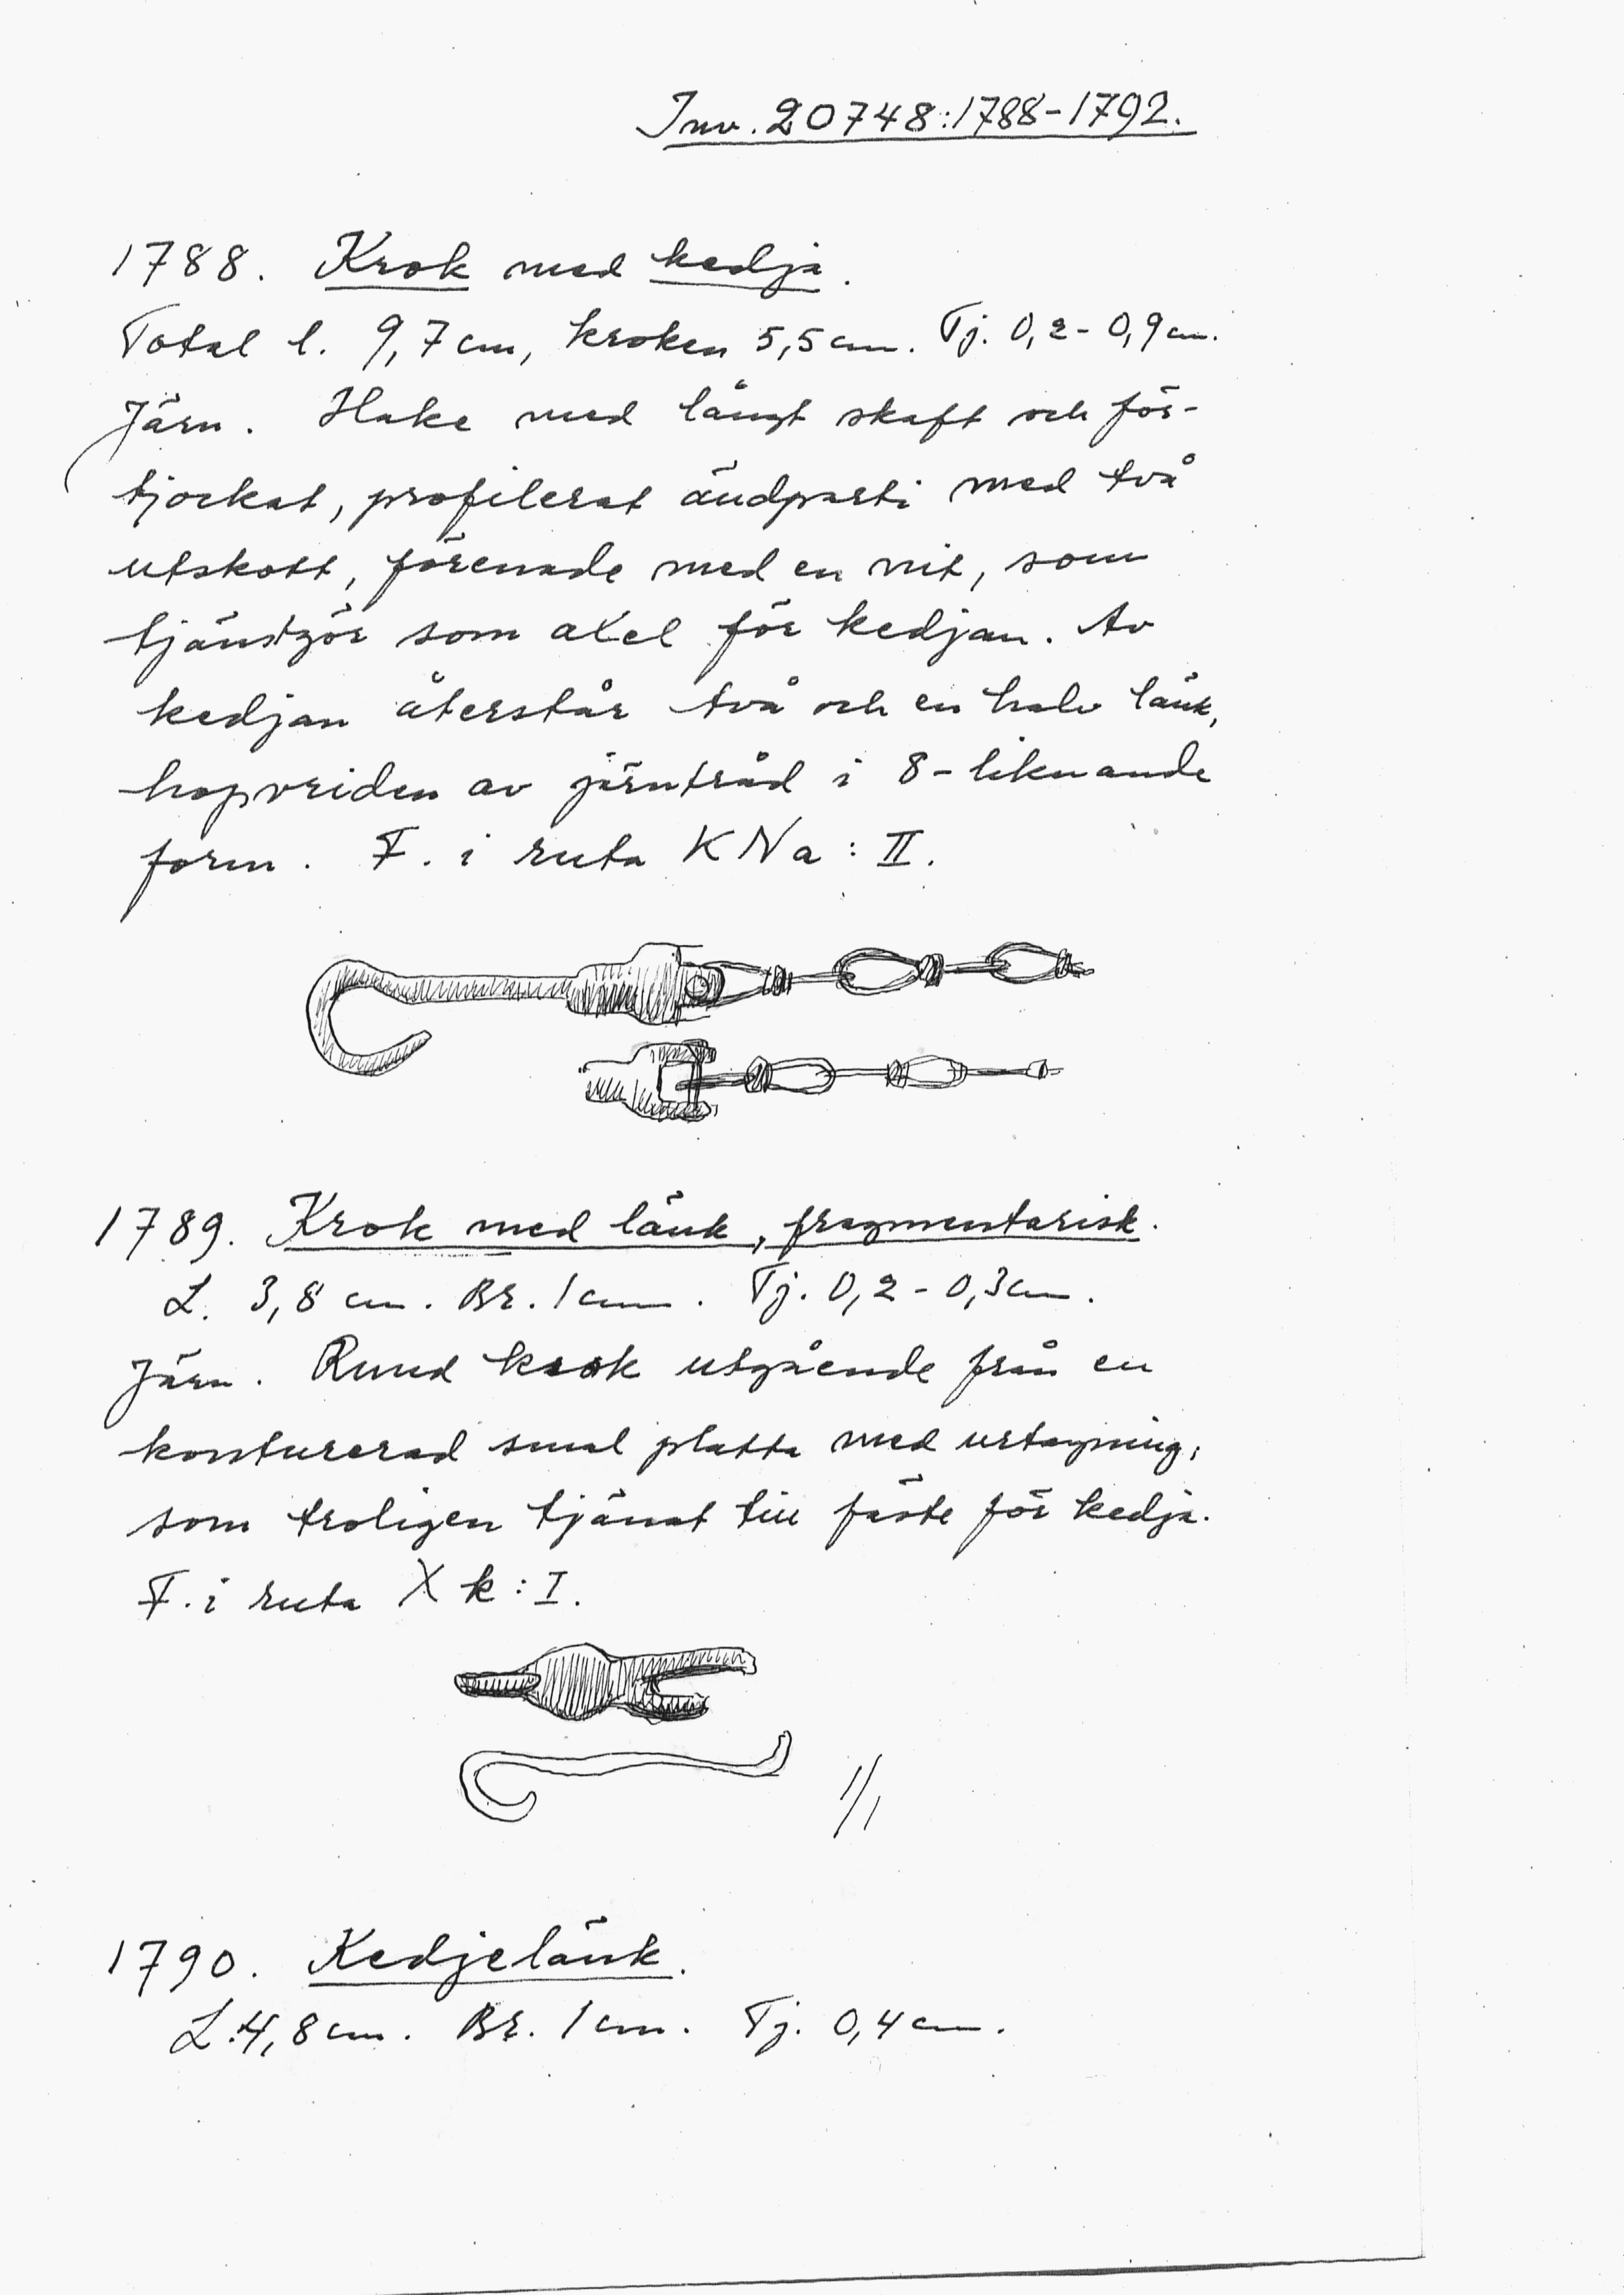 Inv. 20748:1788-1792.
1788. Krok med kedja.
Total l. 9,7 cm, kroken 5,5 cm. Tj. 0,2 - 0,9 cm.
Järn. Hake med långt skaft och för-
tjockat, profilerat ändparti med två
utskott, förenade med en nit, som
tjänstgör som axel för kedjan. Av
kedjan återstår två och en halv länk,
hopvriden av järntråd i 8-liknande
form. F. i ruta KNa: II.
1789. Krok med länk, fragmentarisk.
L. 3,8 cm. Br. 1 cm. Tj. 0,2 - 0,3 cm.
Järn. Rund krok utgående från en
konturerad smal platta med urtagning,
som troligen tjänat till fäste för kedja.
F. i ruta Xk: I.
1/1
1790. Kedjelänk.
L. 4,8 cm. Br. 1 cm. Tj. 0,4 cm.